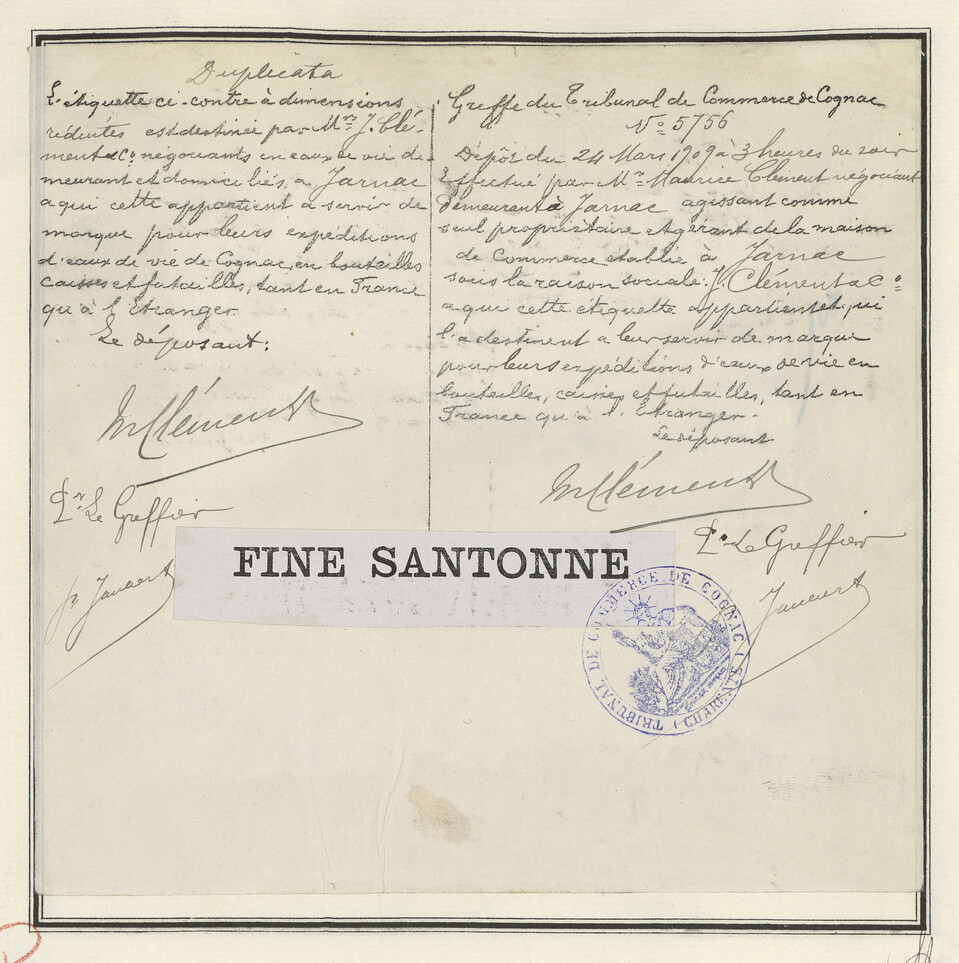 Duplicata
L'étiquette ci-contre à dimensions
réduites est destinée par Mrs J. Clé-
ment & Co négociants en eaux de vie de-
meurant et domiciliés, à Jarnac
a qui cette appartient a servir de
marque pour leurs expéditions
d'eaux de vie de Cognac, en bouteilles
caisses et futailles, tant en France
qu'à l'Etranger.
Le déposant:
M Clément
Pr Le Greffier
Greffe du Tribunal de Commerce de Cognac
No 5756
Dépôt du 24 Mars 1909 à 3 heures du soir
Effectué par Mr Maurice Clément négociant
demeurant à Jarnac agissant comme
seul propriétaire et gérant de la maison
de Commerce etablie à Jarnac
sous la raison sociale: J. Clément & Co
a qui cette étiquette appartient et qui
la destinent a leur servir de marque
pour leurs expéditions d'eaux de vie en
bouteilles, caisses et futailles, tant en
France qu'à l'Etranger.
Le déposant
M Clément
Pr Le Greffier
FINE SANTONNE
TRIBUNAL DE COMMERCE DE COGNAC (CHARENTE)